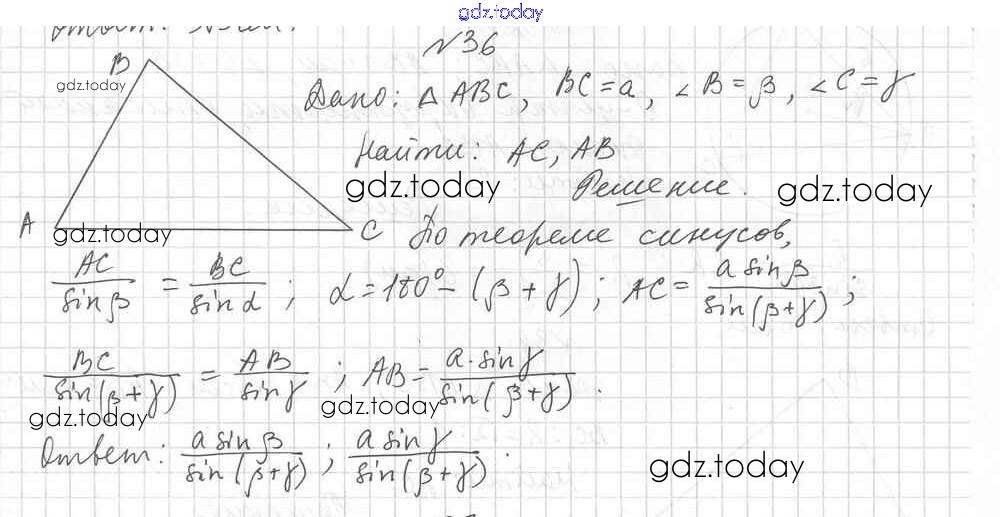 gdz.today
№36
B
gdz.today
Дано: △ ABC, BC = a, ∠B = β, ∠C = γ
Найти: AC, AB
gdz.today
Решение.
gdz.today
A
gdz.today
C
По теореме синусов,
AC/sin β = BC/sin α ; α = 180° − (β + γ) ; AC = a sin β/sin(β + γ) ;
BC/sin(β + γ) = AB/sin γ ; AB = a · sin γ/sin(β + γ) .
gdz.today
gdz.today
Ответ: a sin β/sin(β + γ) ; a sin γ/sin(β + γ) .
gdz.today